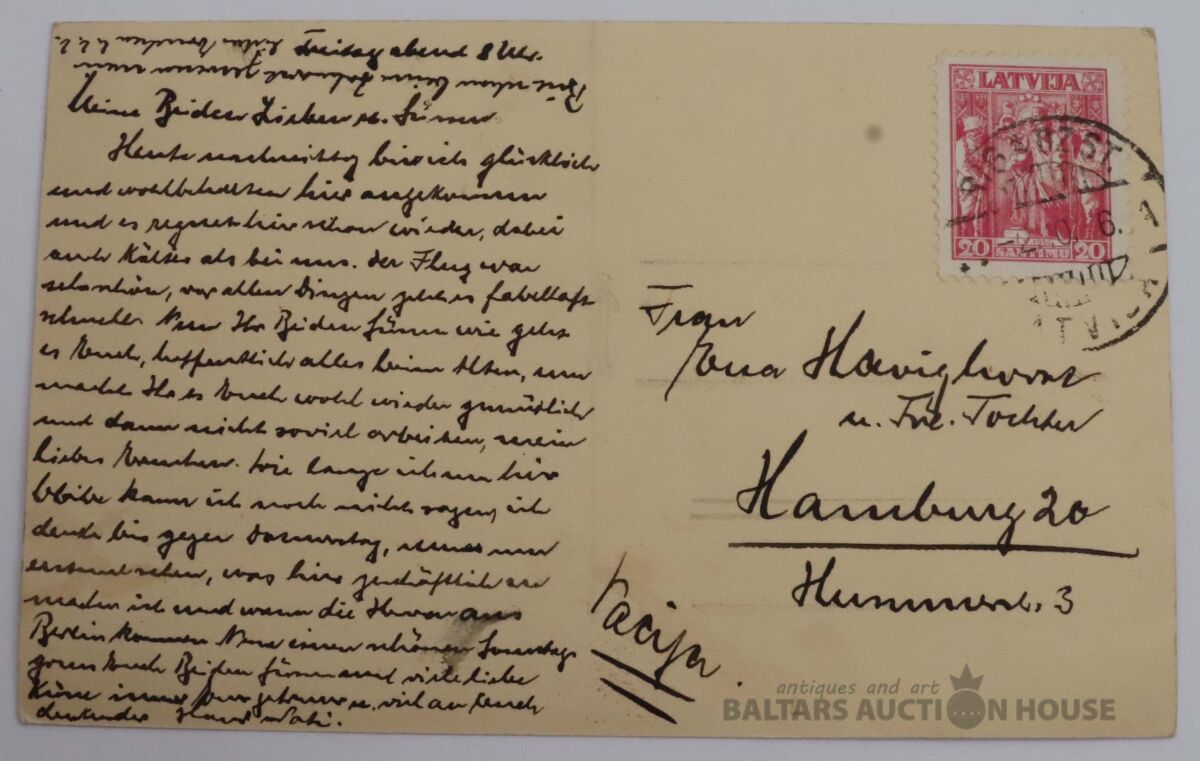 Freitag abend 8 Uhr.
Meine Beiden Lieben u. Süssen
Heute nachmittag bin ich glücklich
und wohlbehalten hier angekommen
und es regnet hier schon wieder, dabei
auch kälter als bei uns. Der Flug war
sehr schön, vor allen Dingen geht es fabelhaft
schnell. Nun Ihr Beiden Süssen wie geht
es Euch, hoffentlich alles beim Alten, nun
macht Ihr es Euch wohl wieder gemütlich
und dann nicht soviel arbeiten, mein
liebes. Wie lange ich nun hier
bleibe kann ich noch nicht sagen, ich
denke bis gegen Donnerstag, muss nun
erst mal sehen, was hier geschäftlich zu
machen ist und wann die Herren aus
Berlin kommen. Nun einen schönen Sonntag
Euch Beiden Süssen und viele liebe
Küsse immer Euer u. viel an Euch
denkender Hans
LATVIJA
20 SANTIMU 20
Frau
Havighorst
u. Frl. Tochter
Hamburg 20
3
Vācija
antiques and art
BALTARS AUCTION HOUSE